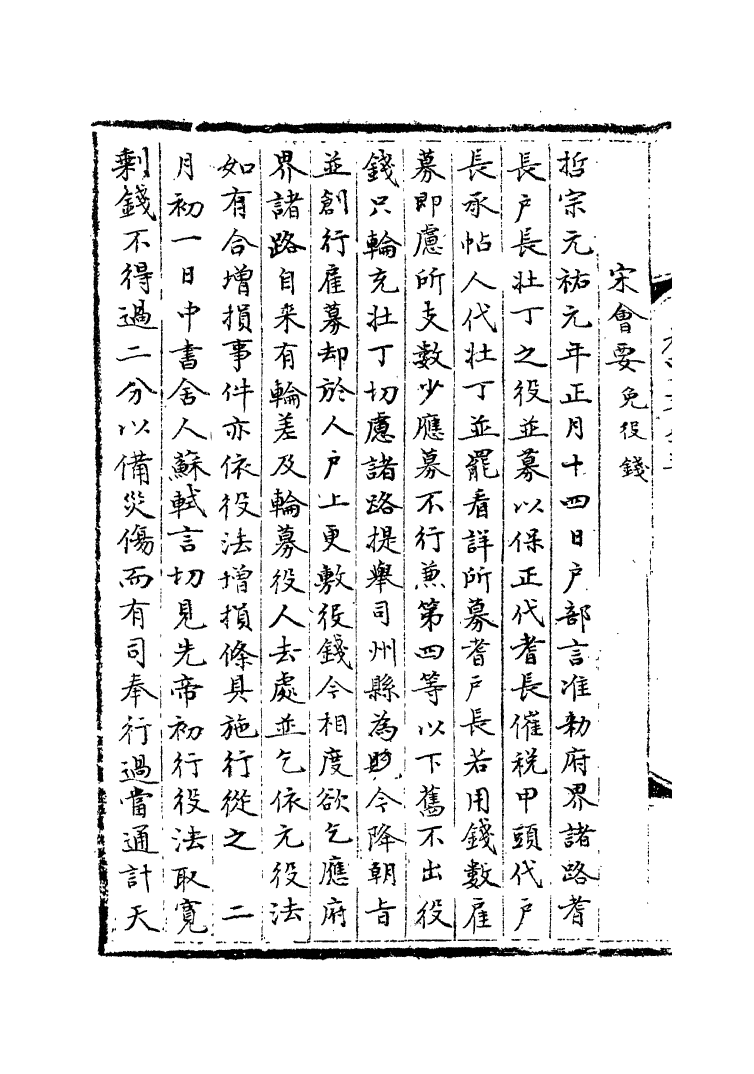 宋會要免役錢
哲宗元祐元年正月十四日户部言准勑府界諸路耆
長户長壯丁之役並募以保正代耆長催税甲頭代户
長承帖人代壯丁並罷看詳所募耆户長若用錢數雇
募即慮所支數少應募不行兼第四等以下舊不出役
錢只輪充壯丁切慮諸路提舉司州縣為見今降朝旨
並創行雇募却於人户上更敷役錢今相度欲乞應府
界諸路自来有輪差及輪募役人去處並乞依元役法
如有合增損事件亦依役法增損條具施行從之 二
月初一日中書舍人蘇軾言切見先帝初行役法取寛
剩錢不得過二分以備災傷而有司奉行過當通計天